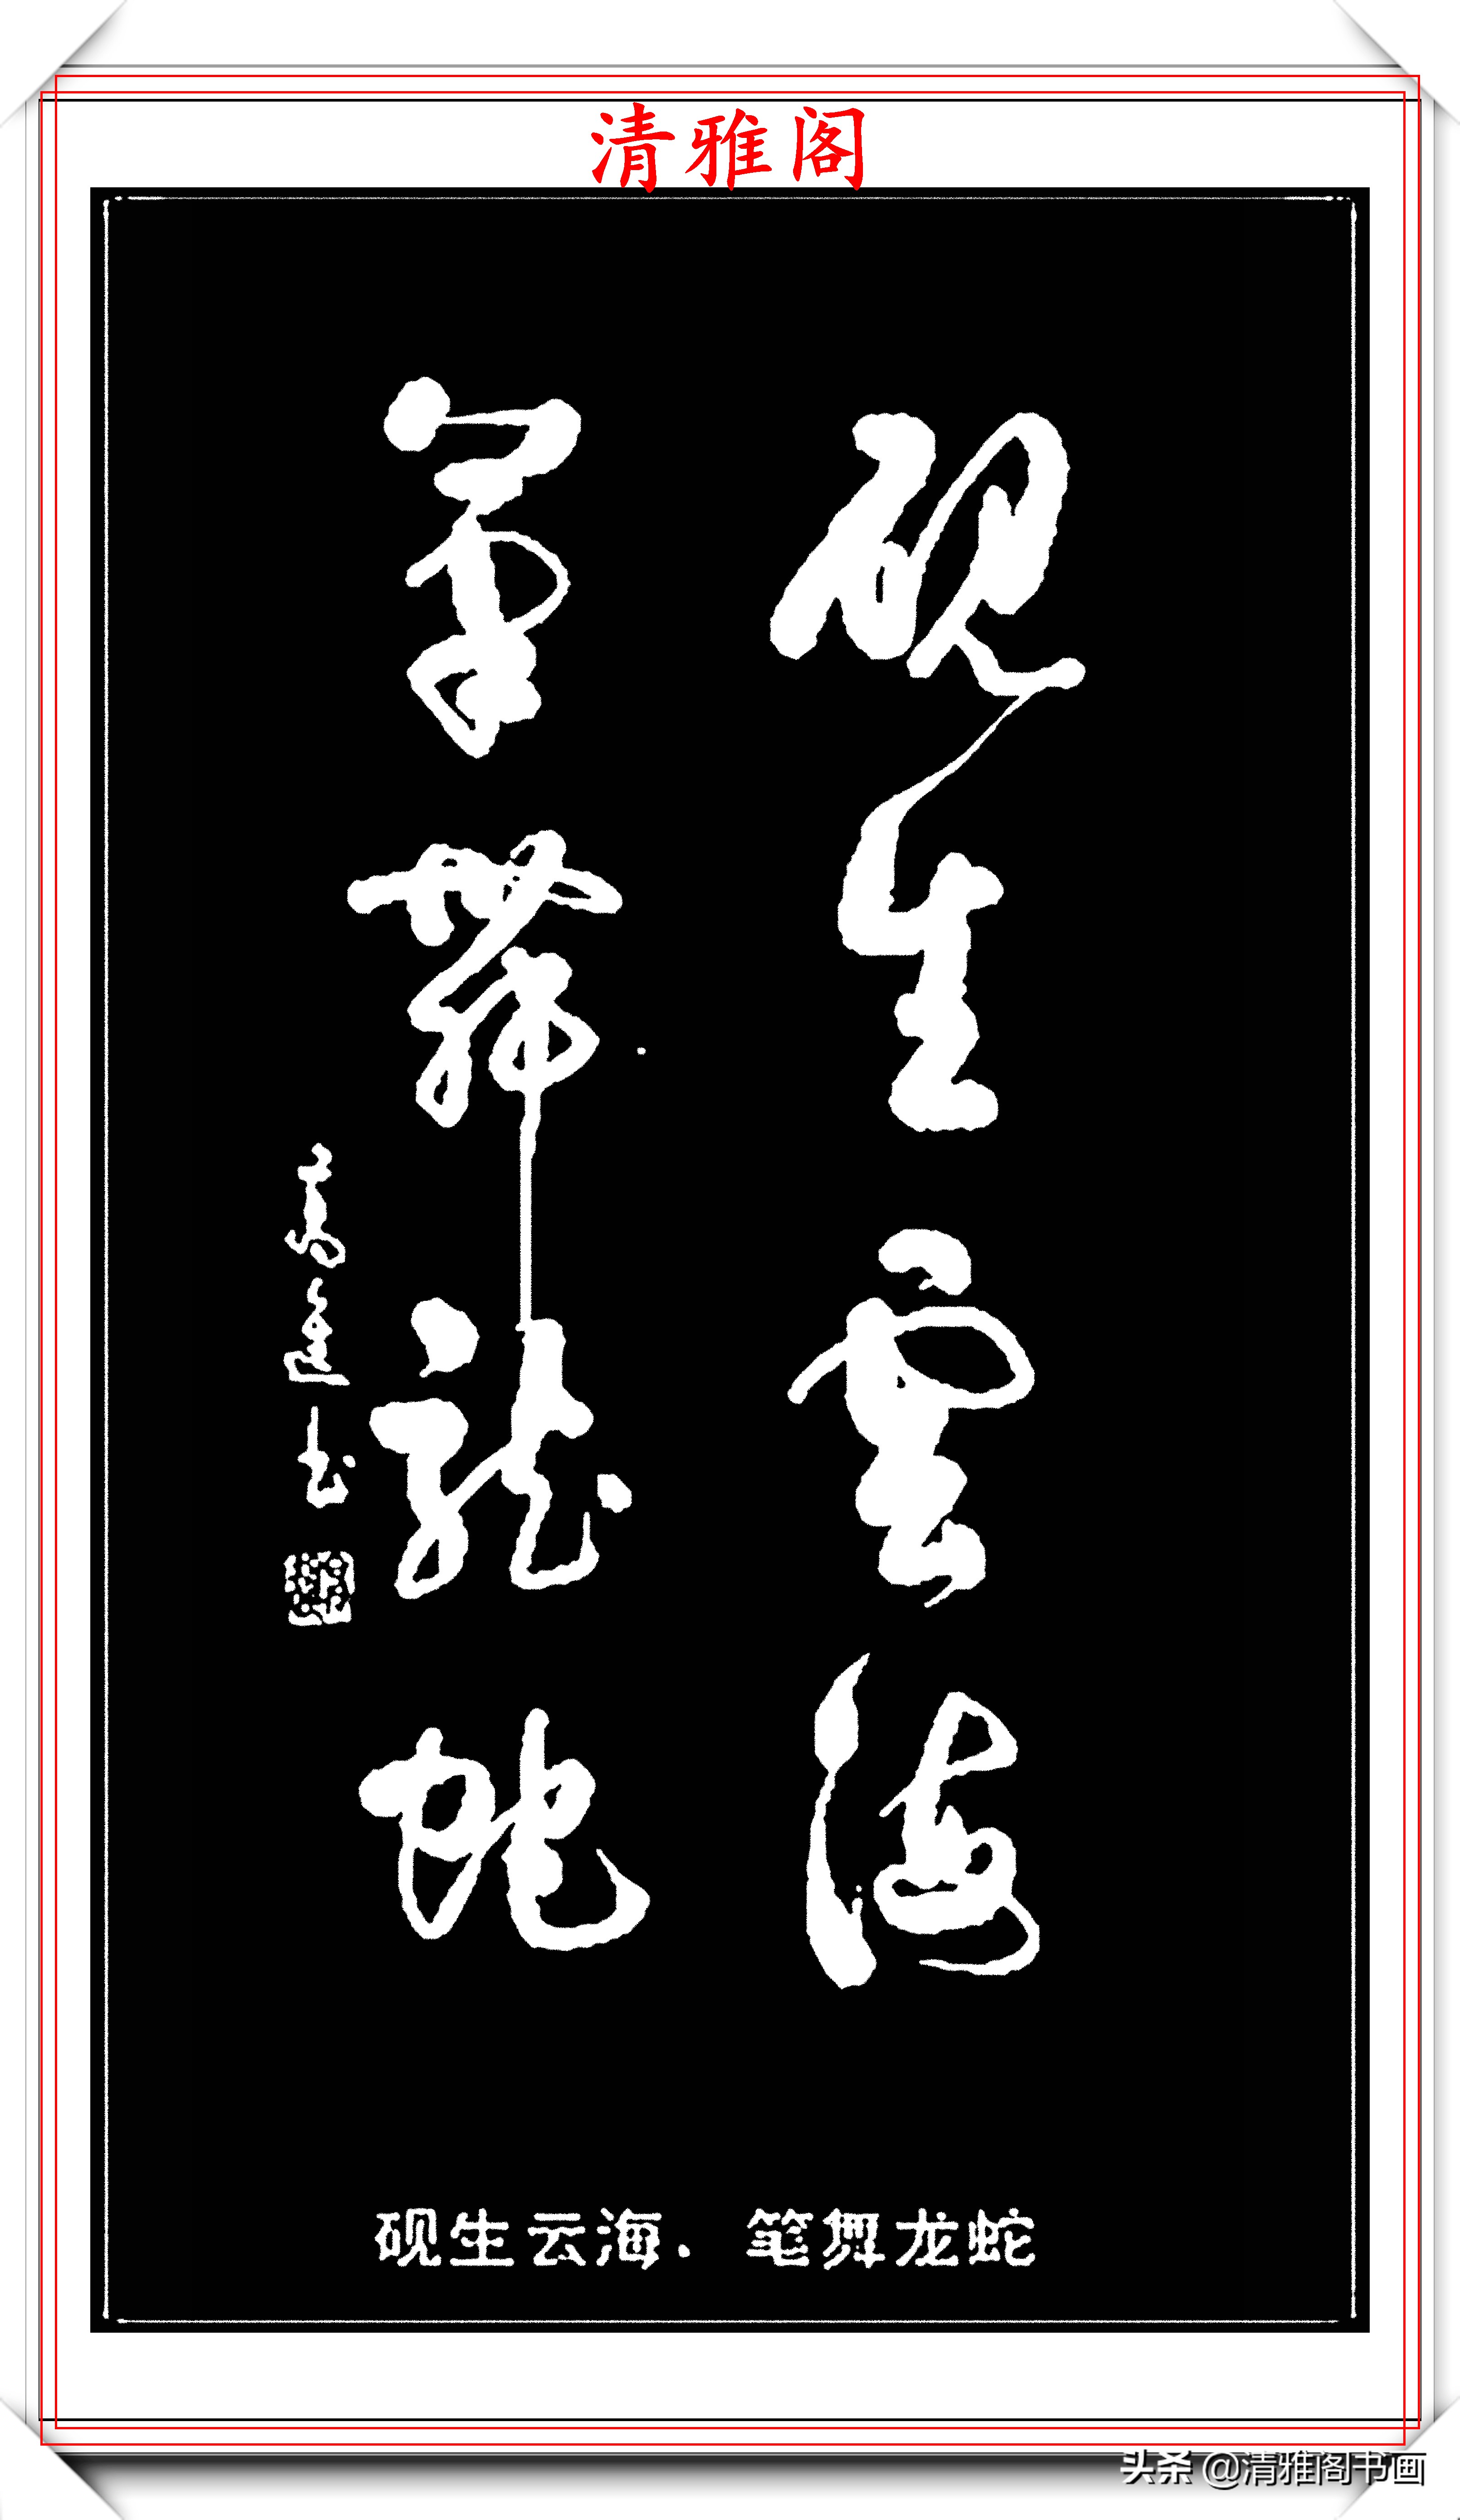 清雅阁
硯生雲海
筆舞龍蛇
砚生云海．笔舞龙蛇
头条 @清雅阁书画